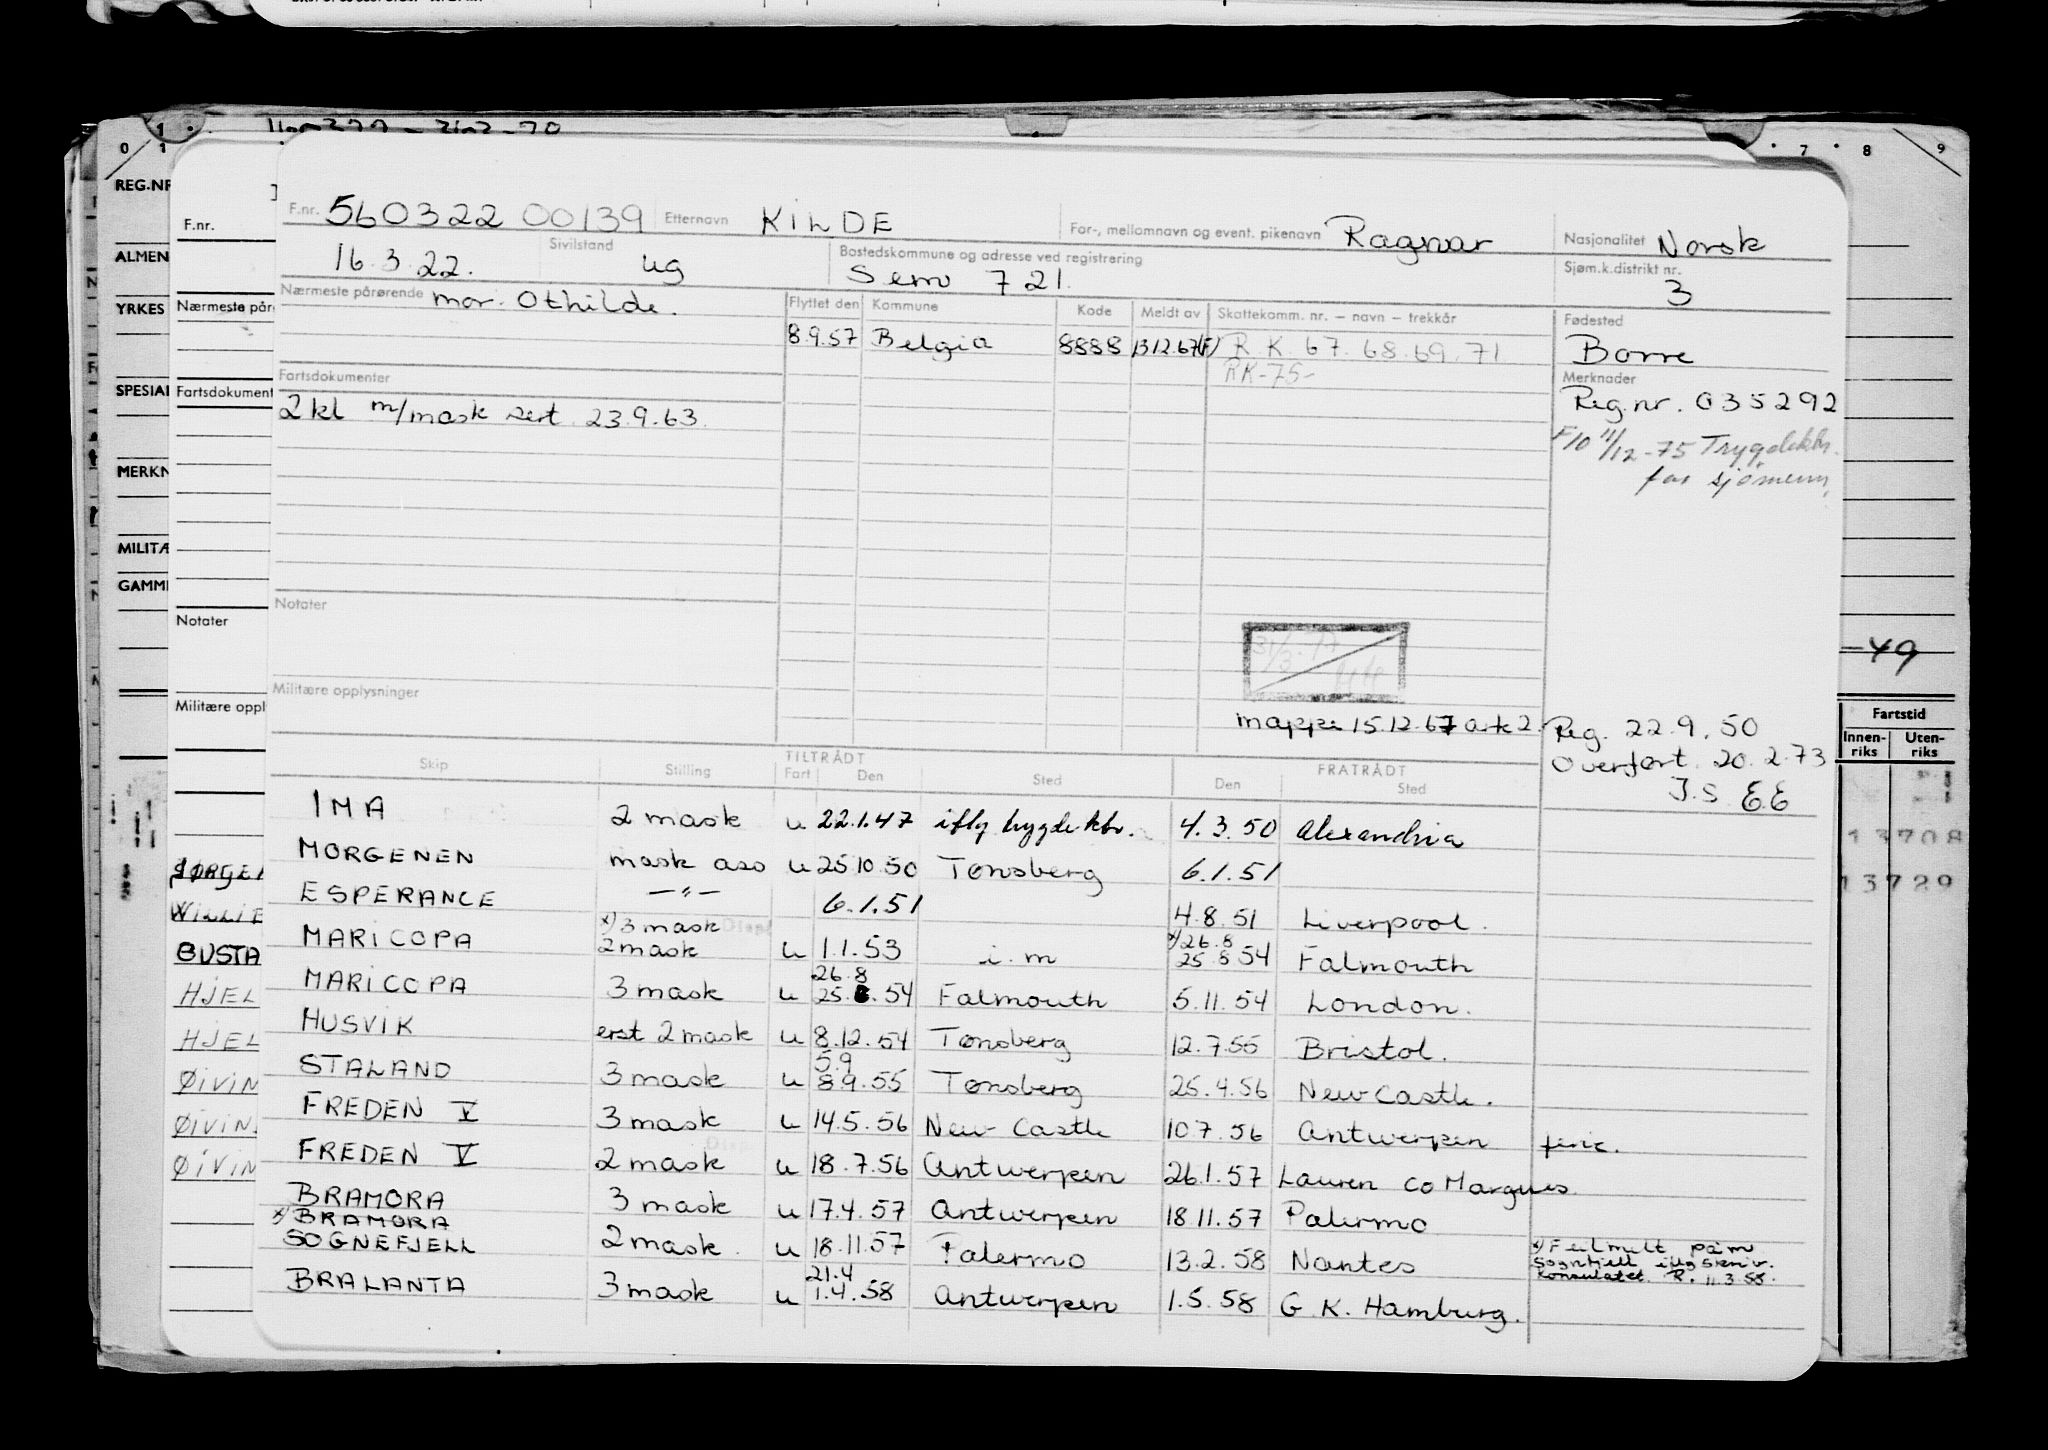 0 1 7 8 9
REG.NR
ALMEN
YRKES
SPESIAL
MERKN
MILITÆ
GAMME
F.nr.
Nærmeste pårø
Fartsdokument
Notater
Militære oppl
F.nr. 560322 00139 Etternavn KILDE For-, mellomnavn og event. pikenavn Ragnar Nasjonalitet Norsk
16.3.22. Sivilstand ug Bostedskommune og adresse ved registrering Sem 721. Sjøm.k.distrikt nr. 3
Nærmeste pårørende mor: Othilde. Flyttet den Kommune Kode Meldt av Skattekomm. nr. – navn – trekkår Fødested
8.9.57 Belgia 8888 13.12.67(F) R.K. 67. 68. 69. 71 Borre
RK-75-
Fartsdokumenter Merknader
2 kl m/mask sert. 23.9.63. Reg.nr. 035292
F10 11/12-75 Trygdektr.
for sjømenn
Notater
31/3-77
Militære opplysninger
mappe 15.12.67 ark 2. Reg. 22.9.50
Overført. 20.2.73
J.S. EE
-49
Fartstid
Innen-riks Uten-riks
13708
13729
TILTRÅDT FRATRÅDT
Skip Stilling Fart Den Sted Den Sted
IMA 2 mask u 22.1.47 iflg trygdektr. 4.3.50 Alexandria
MORGENEN mask ass u 25.10.50 Tønsberg 6.1.51
ESPERANCE —"— 6.1.51 4.8.51 Liverpool.
MARICOPA x) 3 mask 2 mask u 1.1.53 i.m x) 26.8 25.8 54 Falmouth
MARICOPA 3 mask u 26.8 25.8.54 Falmouth 5.11.54 London.
HUSVIK erst 2 mask u 8.12.54 Tønsberg 12.7.55 Bristol.
STALAND 3 mask u 5.9 8.9.55 Tønsberg 25.4.56 New Castle.
FREDEN V 3 mask u 14.5.56 New Castle 10.7.56 Antwerpen ferie.
FREDEN V 2 mask u 18.7.56 Antwerpen 26.1.57 Lauren co Marques
BRAMORA 3 mask u 17.4.57 Antwerpen 18.11.57 Palermo
x) BRAMORA
SOGNEFJELL 2 mask. u 18.11.57 Palermo 13.2.58 Nantes x) Feilmelt påm Sognefjell iflg skriv. Konsulatet R. 11.3.58.
BRALANTA 3 mask u 21.4 1.4.58 Antwerpen 1.5.58 G.K. Hamburg.
JØRGE
WILLIE
GUSTA
HJEL
HJEL
ØIVIN
ØIVIN
ØIVIN